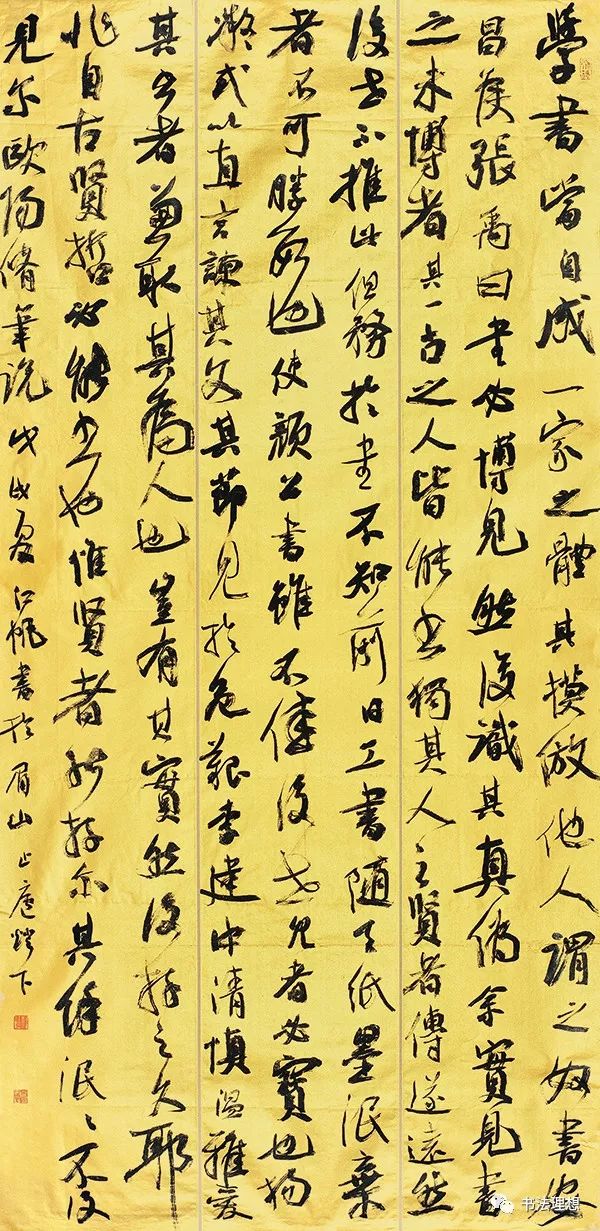 學書當自成一家之體其摸倣他人謂之奴書安
昌侯張禹曰書必博見然後識其真偽余實見書
之未博者其一古之人皆能書獨其人之賢者傳遂遠然
後世不推此但務於書不知前日工書隨與紙墨泯棄
者不可勝數也使顏公書雖不佳後世見者必寶也楊
凝式以直言諫其父其節見於危艱李建中清慎溫雅愛
其書者兼取其為人也豈有其實然後存之久耶
非自古賢哲必能書也惟賢者能存爾其餘泯泯不復
見爾歐陽脩筆說戊戌夏江帆書於眉山止廬燈下
书法理想